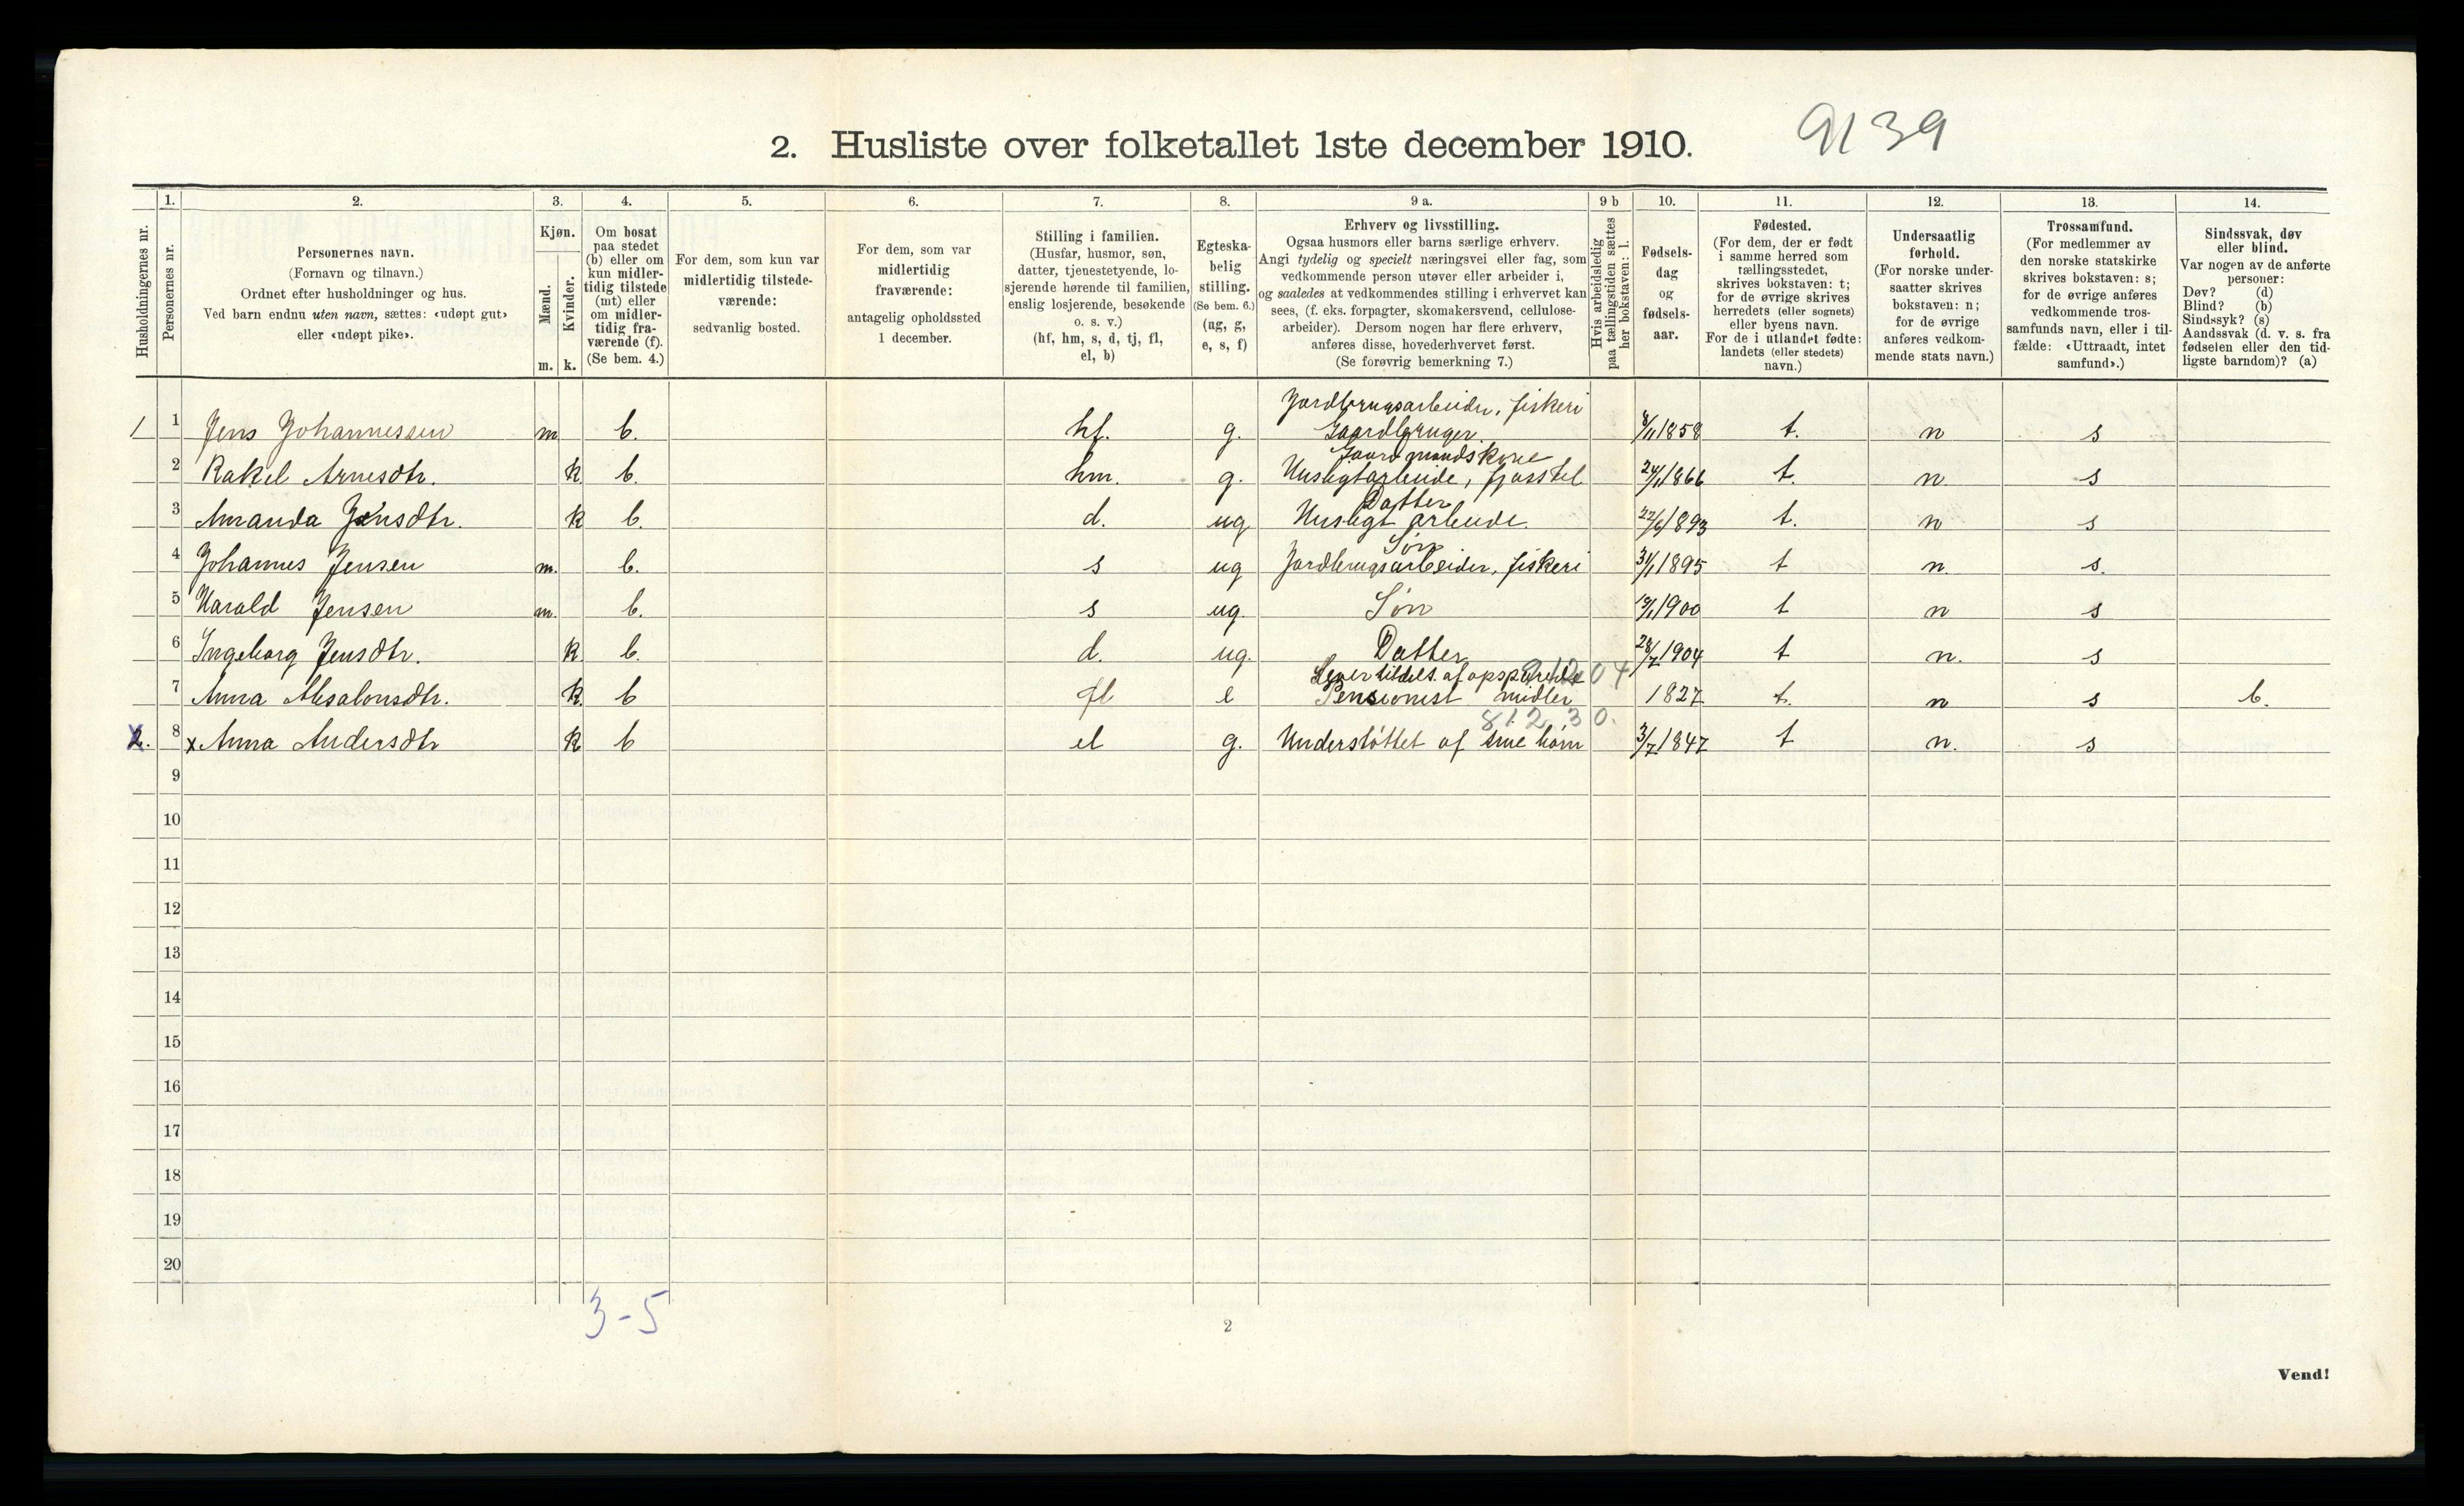 9139
2. Husliste over folketallet 1ste december 1910.
Husholdningernes nr.
1. Personernes nr.
2. Personernes navn.
(Fornavn og tilnavn.)
Ordnet efter husholdninger og hus.
Ved barn endnu uten navn, sættes: «udøpt gut»
eller «udøpt pike».
3. Kjøn.
Mænd. m.
Kvinder. k.
4. Om bosat
paa stedet
(b) eller om
kun midler-
tidig tilstede
(mt) eller
om midler-
tidig fra-
værende (f).
(Se bem. 4.)
5. For dem, som kun var
midlertidig tilstede-
værende:
sedvanlig bosted.
6. For dem, som var
midlertidig
fraværende:
antagelig opholdssted
1 december.
7. Stilling i familien.
(Husfar, husmor, søn,
datter, tjenestetyende, lo-
sjerende hørende til familien,
enslig losjerende, besøkende
o. s. v.)
(hf, hm, s, d, tj, fl,
el, b)
8. Egteska-
belig
stilling.
(Se bem. 6.)
(ug, g,
e, s, f)
9 a. Erhverv og livsstilling.
Ogsaa husmors eller barns særlige erhverv.
Angi tydelig og specielt næringsvei eller fag, som
vedkommende person utøver eller arbeider i,
og saaledes at vedkommendes stilling i erhvervet kan
sees, (f. eks. forpagter, skomakersvend, cellulose-
arbeider). Dersom nogen har flere erhverv,
anføres disse, hovederhvervet først.
(Se forøvrig bemerkning 7.)
9 b Hvis arbeidsledig
paa tællingstiden sættes
her bokstaven: l.
10. Fødsels-
dag
og
fødsels-
aar.
11. Fødested.
(For dem, der er født
i samme herred som
tællingsstedet,
skrives bokstaven: t;
for de øvrige skrives
herredets (eller sognets)
eller byens navn.
For de i utlandet fødte:
landets (eller stedets)
navn.)
12. Undersaatlig
forhold.
(For norske under-
saatter skrives
bokstaven: n;
for de øvrige
anføres vedkom-
mende stats navn.)
13. Trossamfund.
(For medlemmer av
den norske statskirke
skrives bokstaven: s;
for de øvrige anføres
vedkommende tros-
samfunds navn, eller i til-
fælde: «Uttraadt, intet
samfund».)
14. Sindssvak, døv
eller blind.
Var nogen av de anførte
personer:
Døv? (d)
Blind? (b)
Sindssyk? (s)
Aandssvak (d. v. s. fra
fødselen eller den tid-
ligste barndom)? (a)
Jordbrugsarbeider, fiskeri
1 1 Jens Johannessen m b. hf. g. Gaardbruger 1858 t. n s
Gaardmandskone
2 Rakel Arnesdtr. k b. hm. g. Husligtarbeide, fjosstel 24/11 1866 t. n. s
Datter
3 Amanda Jensdtr. k b. d. ug Husligt arbeide. 22/6 1893 t. n s
Søn
4 Johannes Jensen m. b. s ug Jordbrugsarbeider, fiskeri 31/1 1895 t n. s.
5 Harald Jensen m. b. s ug. Søn 1900 t n s
6 Ingeborg Jensdtr. k b. d. ug. Datter 28/7 1904 t n. s
Lever tildels af opsparede
7 Anna Absalonsdtr. k b fl e Pensionist midler 1827 t. n s b.
812 30.
2. 8 x Anna Andersdtr k b el g. Understøttet af sine børn 3/7 1847 t n. s
9
10
11
12
13
14
15
16
17
18
19
20
3-5
2
Vend!